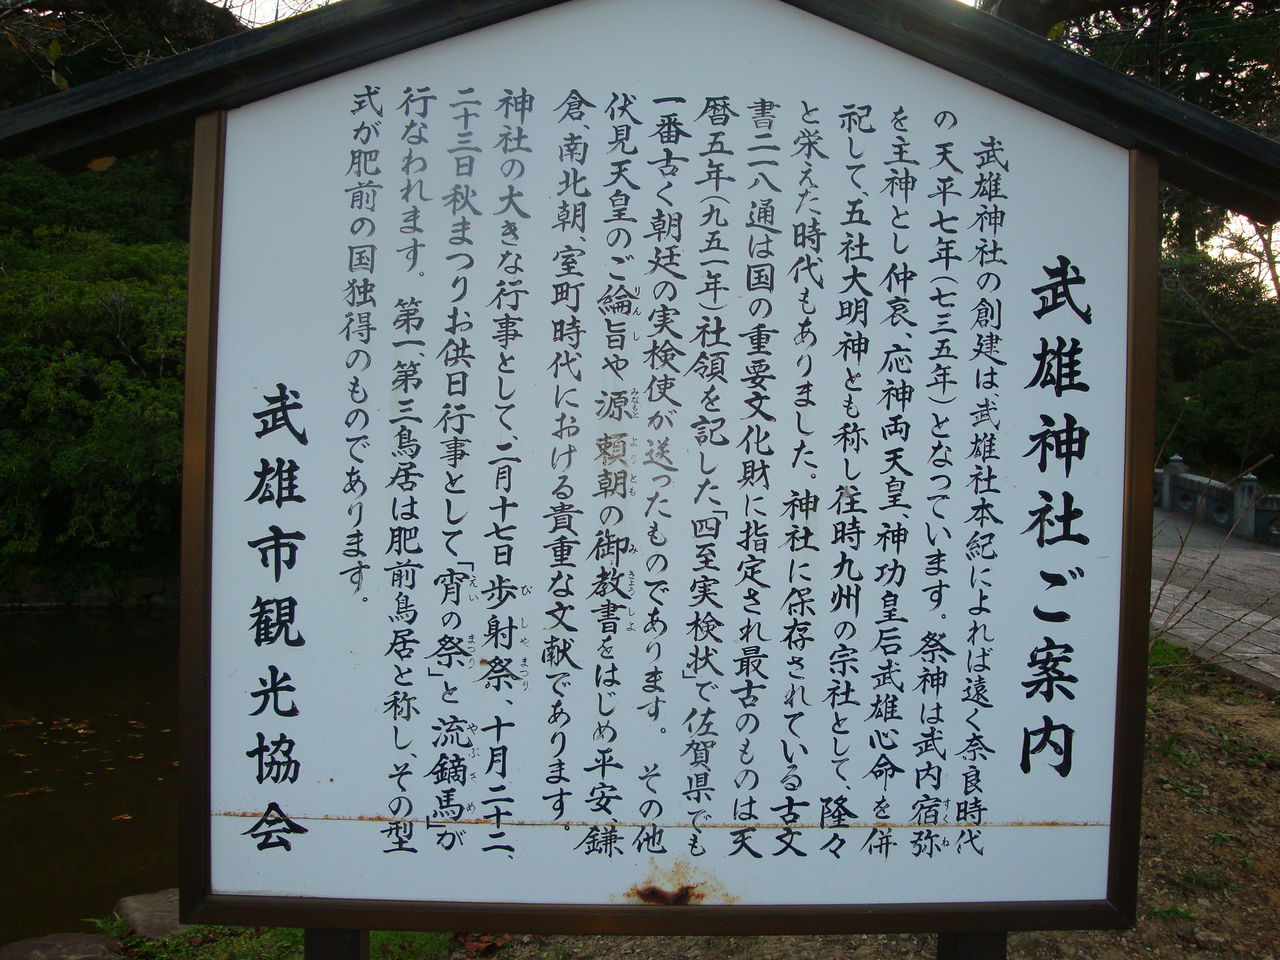 武雄神社ご案内
武雄神社の創建は、武雄社本紀によれば遠く奈良時代
の天平七年(七三五年)となつています。祭神は武内宿弥
すくね
を主神とし仲哀、応神両天皇、神功皇后武雄心命を併
祀して、五社大明神とも称し往時九州の宗社として、隆々
と栄えた時代もありました。神社に保存されている古文
書二一八通は国の重要文化財に指定され最古のものは天
暦五年(九五一年)社領を記した「四至実検状」で佐賀県でも
一番古く朝廷の実検使が送ったものであります。その他
伏見天皇のご綸旨や源頼朝の御教書をはじめ平安、鎌
りんし
みなもとよりとも
みきょうしよ
倉、南北朝、室町時代における貴重な文献であります。
神社の大きな行事として、二月十七日歩射祭、十月二十二、
びしやまつり
二十三日秋まつりお供日行事として「宵の祭」と流鏑馬」が
えい
まつり
やぶさめ
行なわれます。第一、第三鳥居は肥前鳥居と称し、その型
式が肥前の国独得のものであります。
武雄市観光協会